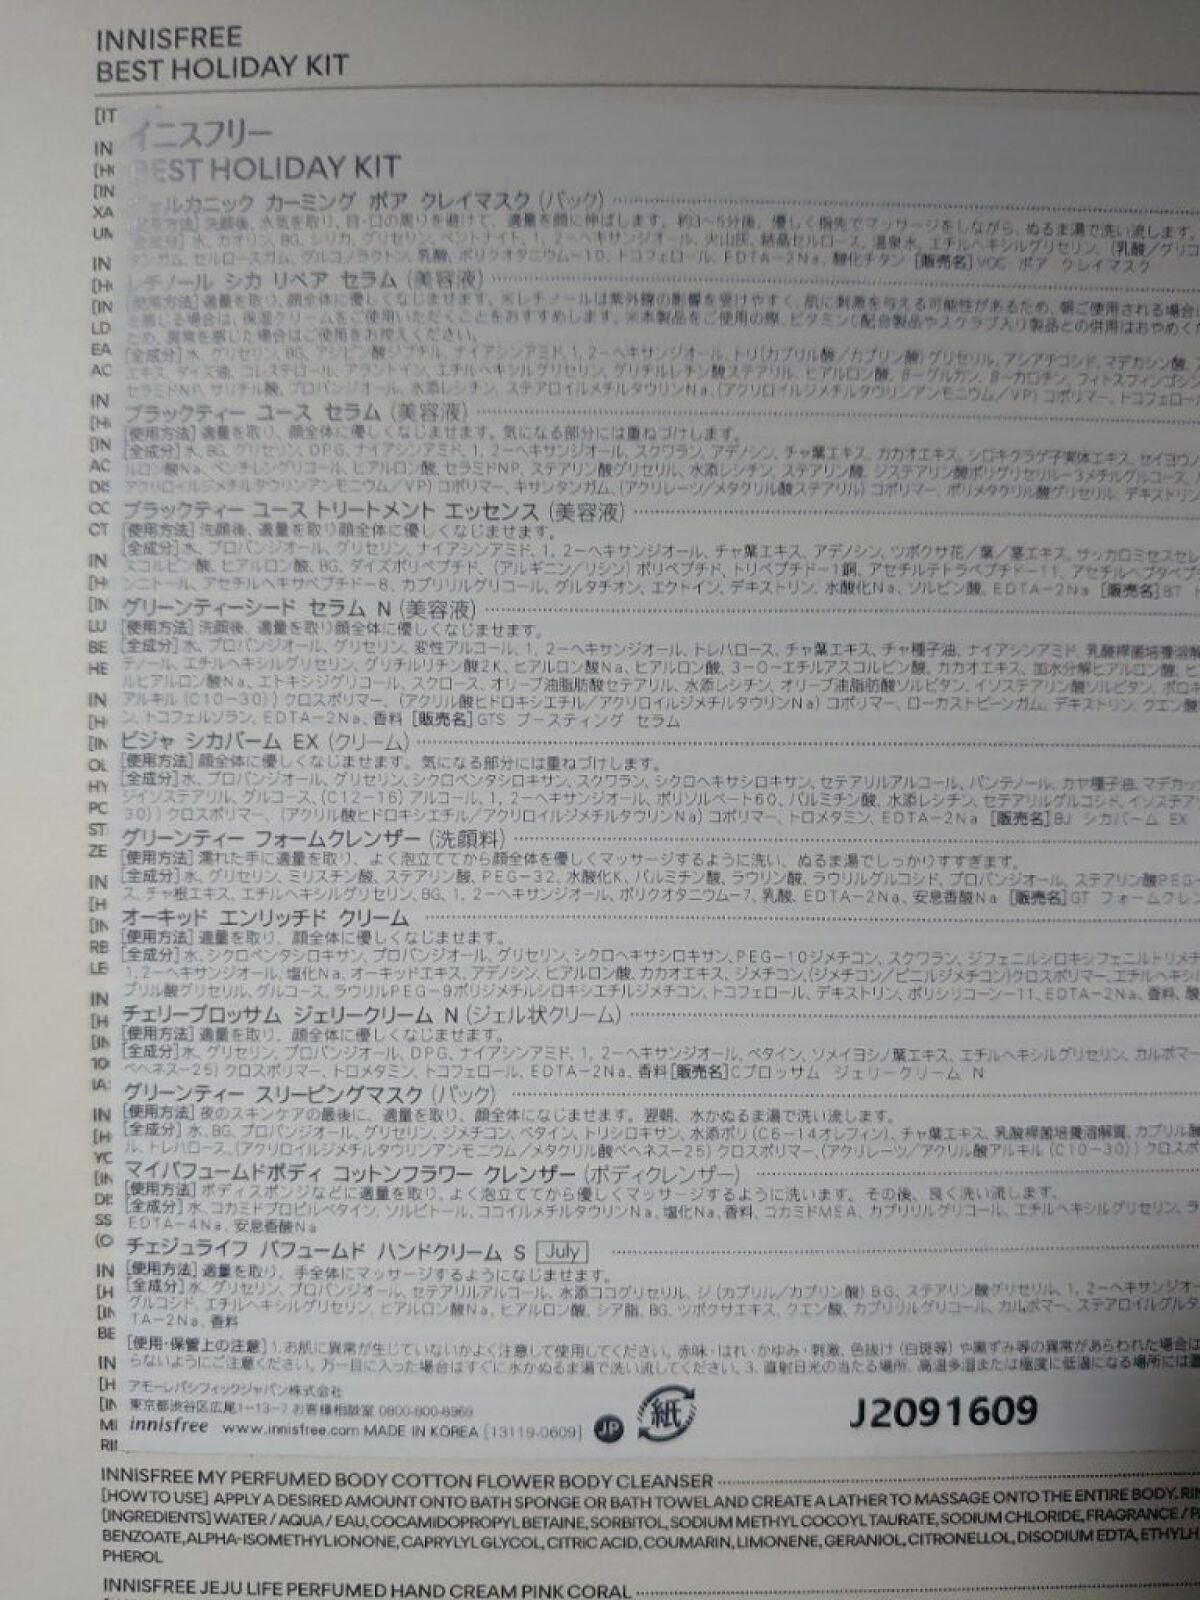 INNISFREE
BEST HOLIDAY KIT
イニスフリー
BEST HOLIDAY KIT
カーミング ポア クレイマスク (パック)
洗顔後、水気を取り、目・口の周りを避けて、適量を顔に伸ばします。約3~5分後、優しく指先でマッサージをしながら、ぬるま湯で洗い流します。
水、カオリン、BG、シリカ、グリセリン、ベントナイト、1,2-ヘキサンジオール、火山灰、結晶セルロース、温泉水、エチルヘキシルグリセリン、(乳酸/グリコ
タンガム、セルロースガム、グルコノラクトン、乳酸、ポリクオタニウム-10、トコフェロール、EDTA-2Na、酸化チタン [販売名]VCC ポア クレイマスク
レチノール シカ リペア セラム (美容液)
[使用方法]適量を取り、顔全体に優しくなじませます。※レチノールは紫外線の影響を受けやすく、肌に刺激を与える可能性があるため、朝ご使用される場合
を感じる場合は、保湿クリームをご使用いただくことをおすすめします。※本製品をご使用の際、ビタミンC配合製品やスクラブ入り製品との併用はおやめくだ
ため、異常を感じた場合はご使用をお控えください。
[全成分]水、グリセリン、BG、アジピン酸ジブチル、ナイアシンアミド、1,2-ヘキサンジオール、トリ(カプリル酸/カプリン酸)グリセリル、アシアチコシド、マデカシン酸、
エキス、マイズ油、コレステロール、アラントイン、エチルヘキシルグリセリン、グリチルレチン酸ステアリル、ヒアルロン酸、β-グルカン、β-カロチン、フィトスフィンゴシ
セラミドNP、サリチル酸、プロパンジオール、水添レシチン、ステアロイルメチルタウリンNa、(アクリロイルジメチルタウリンアンモニウム/VP)コポリマー、トコフェロール
ブラックティー ユース セラム (美容液)
[使用方法]適量を取り、顔全体に優しくなじませます。気になる部分には重ねづけします。
[全成分]水、BG、グリセリン、DPG、ナイアシンアミド、1,2-ヘキサンジオール、スクワラン、アデノシン、チャ葉エキス、カカオエキス、シロキクラゲ子実体エキス、セイヨウ
ルロン酸Na、ペンチレングリコール、ヒアルロン酸、セラミドNP、ステアリン酸グリセリル、水添レシチン、ステアリン酸、ジステアリン酸ポリグリセリル-3メチルグルコース、
アクリロイルジメチルタウリンアンモニウム/VP)コポリマー、キサンタンガム、(アクリレーツ/メタクリル酸ステアリル)コポリマー、ポリメタクリル酸グリセリル、デキストリン
ブラックティー ユース トリートメント エッセンス (美容液)
[使用方法]洗顔後、適量を取り顔全体に優しくなじませます。
[全成分]水、プロパンジオール、グリセリン、ナイアシンアミド、1,2-ヘキサンジオール、チャ葉エキス、アデノシン、ツボクサ花/葉/茎エキス、サッカロミセスセレ
スコルビン酸、ヒアルロン酸、BG、ダイズポリペプチド、(アルギニン/リシン)ポリペプチド、トリペプチド-1銅、アセチルテトラペプチド-11、アセチルヘプタペプ
ンニトール、アセチルヘキサペプチド-8、カプリリルグリコール、グルタチオン、エクトイン、デキストリン、水酸化Na、ソルビン酸、EDTA-2Na [販売名]BT
グリーンティーシード セラム N (美容液)
[使用方法]洗顔後、適量を取り顔全体に優しくなじませます。
[全成分]水、プロパンジオール、グリセリン、変性アルコール、1,2-ヘキサンジオール、トレハロース、チャ葉エキス、チャ種子油、ナイアシンアミド、乳酸桿菌培養溶解
テノール、エチルヘキシルグリセリン、グリチルリチン酸2K、ヒアルロン酸Na、ヒアルロン酸、3-O-エチルアスコルビン酸、カカオエキス、加水分解ヒアルロン酸、ヒ
ルヒアルロン酸Na、エトキシジグリコール、スクロース、オリーブ油脂肪酸セテアリル、水添レシチン、オリーブ油脂肪酸ソルビタン、イソステアリン酸ソルビタン、ポロキ
アルキル(C10-30))クロスポリマー、(アクリル酸ヒドロキシエチル/アクリロイルジメチルタウリンNa)コポリマー、ローカストビーンガム、デキストリン、クエン酸
ン、トコフェルソラン、EDTA-2Na、香料 [販売名]GTS ブースティング セラム
ビジャ シカバーム EX (クリーム)
[使用方法]顔全体に優しくなじませます。気になる部分には重ねづけします。
[全成分]水、プロパンジオール、グリセリン、シクロペンタシロキサン、スクワラン、シクロヘキサシロキサン、セテアリルアルコール、パンテノール、カヤ種子油、マデカッ
ジイソステアリル、グルコース、(C12-16)アルコール、1,2-ヘキサンジオール、ポリソルベート60、パルミチン酸、水添レシチン、セテアリルグルコシド、イソステア
30))クロスポリマー、(アクリル酸ヒドロキシエチル/アクリロイルジメチルタウリンNa)コポリマー、トロメタミン、EDTA-2Na [販売名]BJ シカバーム EX
グリーンティー フォームクレンザー (洗顔料)
[使用方法]濡れた手に適量を取り、よく泡立ててから顔全体を優しくマッサージするように洗い、ぬるま湯でしっかりすすぎます。
[全成分]水、グリセリン、ミリスチン酸、ステアリン酸、PEG-32、水酸化K、パルミチン酸、ラウリン酸、ラウリルグルコシド、プロパンジオール、ステアリン酸PEG-
ス、チャ根エキス、エチルヘキシルグリセリン、BG、1,2-ヘキサンジオール、ポリクオタニウム-7、乳酸、EDTA-2Na、安息香酸Na [販売名]GT フォームクレン
オーキッド エンリッチド クリーム
[使用方法]適量を取り、顔全体に優しくなじませます。
[全成分]水、シクロペンタシロキサン、プロパンジオール、グリセリン、シクロヘキサシロキサン、PEG-10ジメチコン、スクワラン、ジフェニルシロキシフェニルトリメチ
1,2-ヘキサンジオール、塩化Na、オーキッドエキス、アデノシン、ヒアルロン酸、カカオエキス、ジメチコン、(ジメチコン/ビニルジメチコン)クロスポリマー、エチルヘキシ
プリル酸グリセリル、グルコース、ラウリルPEG-9ポリジメチルシロキシエチルジメチコン、トコフェロール、デキストリン、ポリシリコーン-11、EDTA-2Na、香料、酸
チェリーブロッサム ジェリークリーム N (ジェル状クリーム)
[使用方法]適量を取り、顔全体に優しくなじませます。
[全成分]水、グリセリン、プロパンジオール、DPG、ナイアシンアミド、1,2-ヘキサンジオール、ベタイン、ソメイヨシノ葉エキス、エチルヘキシルグリセリン、カルボマー
ベヘネス-25)クロスポリマー、トロメタミン、トコフェロール、EDTA-2Na、香料[販売名]Cブロッサム ジェリークリーム N
グリーンティー スリーピングマスク (パック)
[使用方法]夜のスキンケアの最後に、適量を取り、顔全体になじませます。翌朝、水かぬるま湯で洗い流します。
[全成分]水、BG、プロパンジオール、グリセリン、ジメチコン、ベタイン、トリシロキサン、水添ポリ(C6-14オレフィン)、チャ葉エキス、乳酸桿菌培養溶解質、カプリル酸
ル、トレハロース、(アクリロイルジメチルタウリンアンモニウム/メタクリル酸ベヘネス-25)クロスポリマー、(アクリレーツ/アクリル酸アルキル(C10-30))クロスポ
マイパフュームドボディ コットンフラワー クレンザー (ボディクレンザー)
[使用方法]ボディスポンジなどに適量を取り、よく泡立ててから優しくマッサージするように洗います。その後、良く洗い流します。
[全成分]水、コカミドプロピルベタイン、ソルビトール、ココイルメチルタウリンNa、塩化Na、香料、コカミドMEA、カプリリルグリコール、エチルヘキシルグリセリン、ラ
EDTA-4Na、安息香酸Na
チェジュライフ パフュームド ハンドクリーム S July
[使用方法]適量を取り、手全体にマッサージするようになじませます。
[全成分]水、グリセリン、プロパンジオール、セテアリルアルコール、水添ココグリセリル、ジ(カプリル/カプリン酸)BG、ステアリン酸グリセリル、1,2-ヘキサンジオー
グルコシド、エチルヘキシルグリセリン、ヒアルロン酸Na、ヒアルロン酸、シア脂、BG、ツボクサエキス、クエン酸、カプリリルグリコール、カルボマー、ステアロイルグルタ
TA-2Na、香料
[使用・保管上の注意]1.お肌に異常が生じていないかよく注意して使用してください。赤味・はれ・かゆみ・刺激、色抜け(白斑等)や黒ずみ等の異常があらわれた場合は
らないようにご注意ください。万一目に入った場合はすぐに水かぬるま湯で洗い流してください。3.直射日光の当たる場所、高温多湿または極度に低温になる場所には置
アモーレパシフィックジャパン株式会社
東京都渋谷区広尾1-13-7 お客様相談室 0800-800-8969
innisfree www.innisfree.com MADE IN KOREA [13119-0609] JP 紙 J2091609
INNISFREE MY PERFUMED BODY COTTON FLOWER BODY CLEANSER
[HOW TO USE] APPLY A DESIRED AMOUNT ONTO BATH SPONGE OR BATH TOWEL AND CREATE A LATHER TO MASSAGE ONTO THE ENTIRE BODY. RIN
[INGREDIENTS] WATER / AQUA / EAU, COCAMIDOPROPYL BETAINE, SORBITOL, SODIUM METHYL COCOYL TAURATE, SODIUM CHLORIDE, FRAGRANCE / PA
BENZOATE, ALPHA-ISOMETHYL IONONE, CAPRYLYL GLYCOL, CITRIC ACID, COUMARIN, LIMONENE, GERANIOL, CITRONELLOL, DISODIUM EDTA, ETHYLH
PHEROL
INNISFREE JEJU LIFE PERFUMED HAND CREAM PINK CORAL